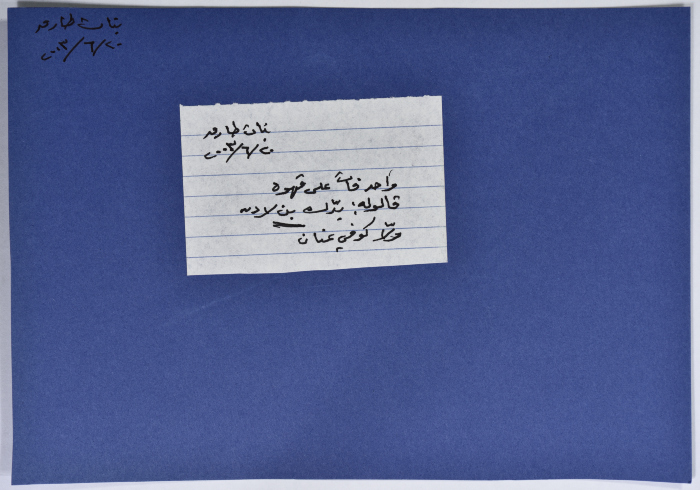 بنات طارق
٢٠٠٣/٦/٢٠
بنات طارق
٢٠٠٣/٦/٢٠
واحد فات على قهوه
قالوله: بدّك بن لادن
ولّا كوفي عنان